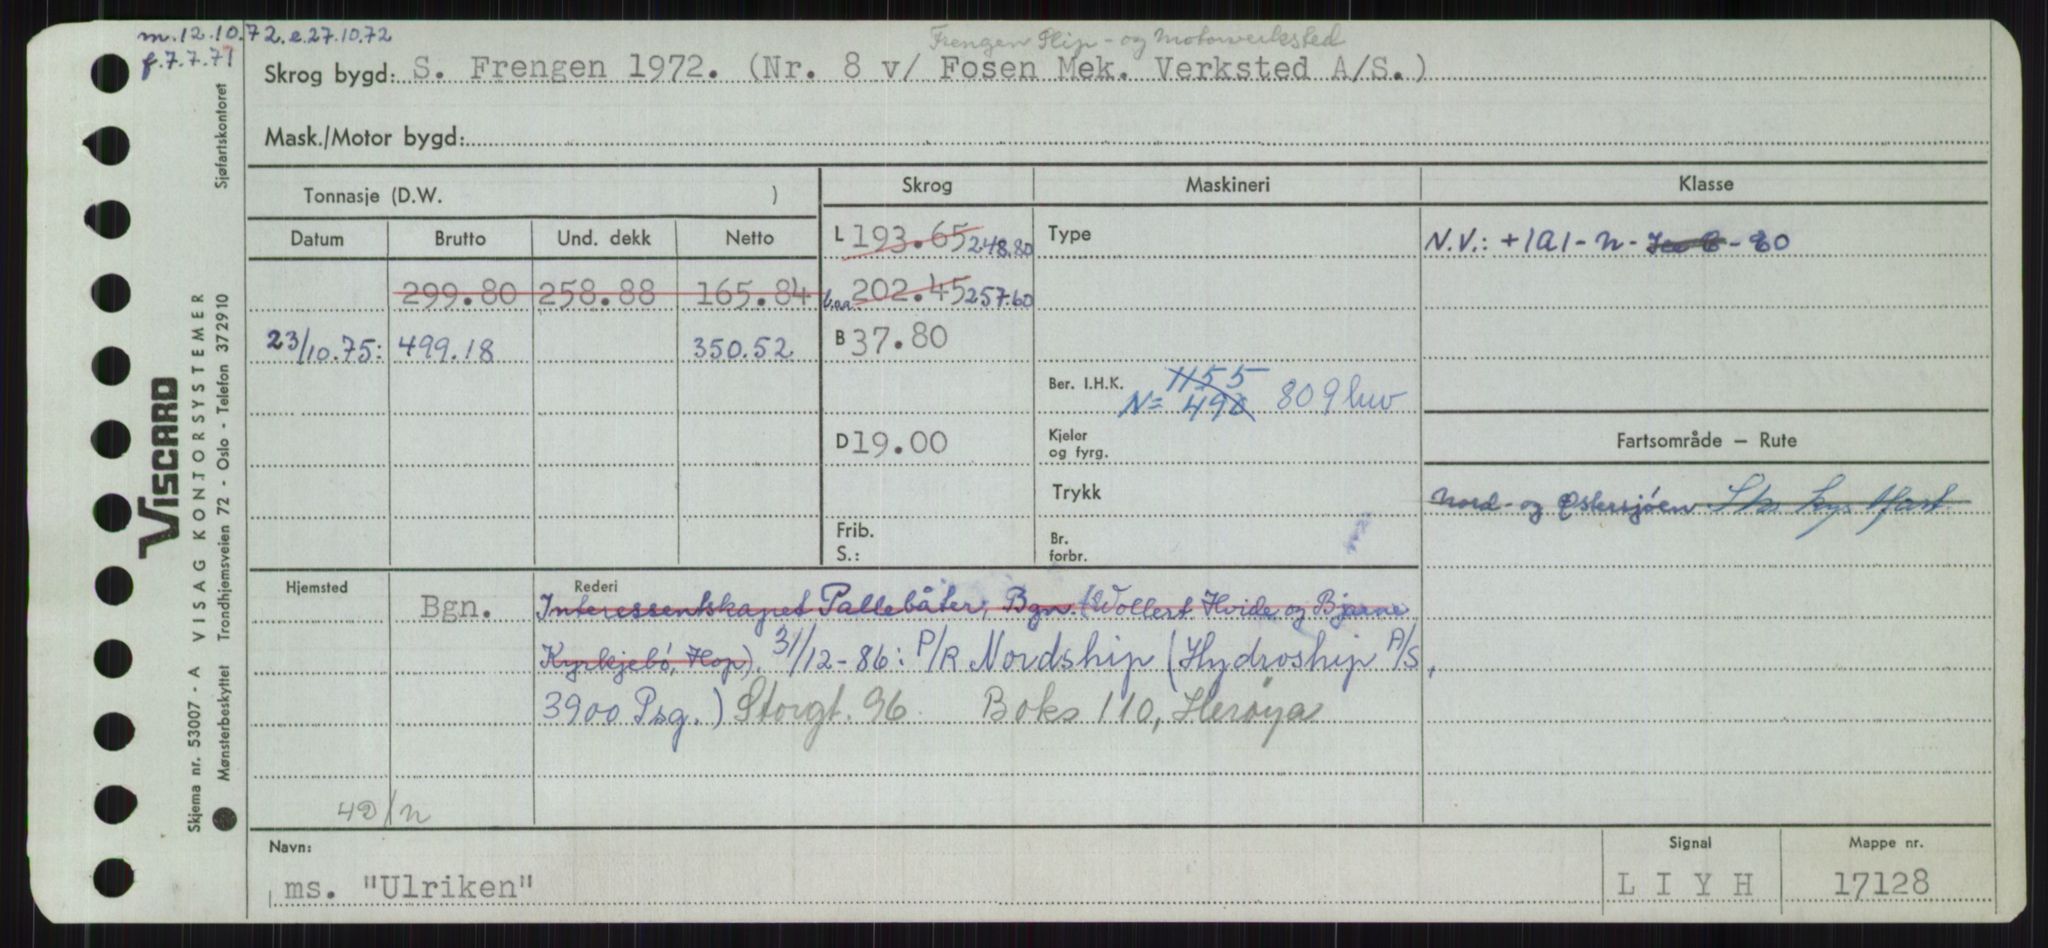 m. 12.10.72. e. 27.10.72
f. 7.7.71
Frengen Slip- og Motorverksted
Skrog bygd: S. Frengen 1972. (Nr. 8 v/ Fosen Mek. Verksted A/S.)
Mask./Motor bygd:
Tonnasje (D.W. )
Skrog
Maskineri
Klasse
Datum Brutto Und. dekk Netto
L 193.65 248.80
Type
N.V.: +1A1 - n - Ice C - 80
299.80 258.88 165.84
l.o.a. 202.45 257.60
23/10.75: 499.18 350.52
B 37.80
Ber. I.H.K. 1155
N= 490 809 kw
D 19.00
Kjeler
og fyrg.
Fartsområde – Rute
Trykk
Nord- og Østersjøen
Frib.
S.:
Br.
forbr.
Hjemsted
Rederi
Bgn.
Interessentskapet Pallebåter, Bgn. (Wollert Hvide og Bjarne
Kyrkjebø, Hop). 31/12-86: P/R Nordship (Hydroship A/S,
3900 Psg.) Storgt. 96 Boks 110, Herøya
4D/n
Navn:
ms. "Ulriken"
Signal
L I Y H
Mappe nr.
17128
VISCARD
Skjema nr. 53007 - A VISAG KONTORSYSTEMER
Mønsterbeskyttet Trondhjemsveien 72 - Oslo - Telefon 372910 Sjøfartskontoret